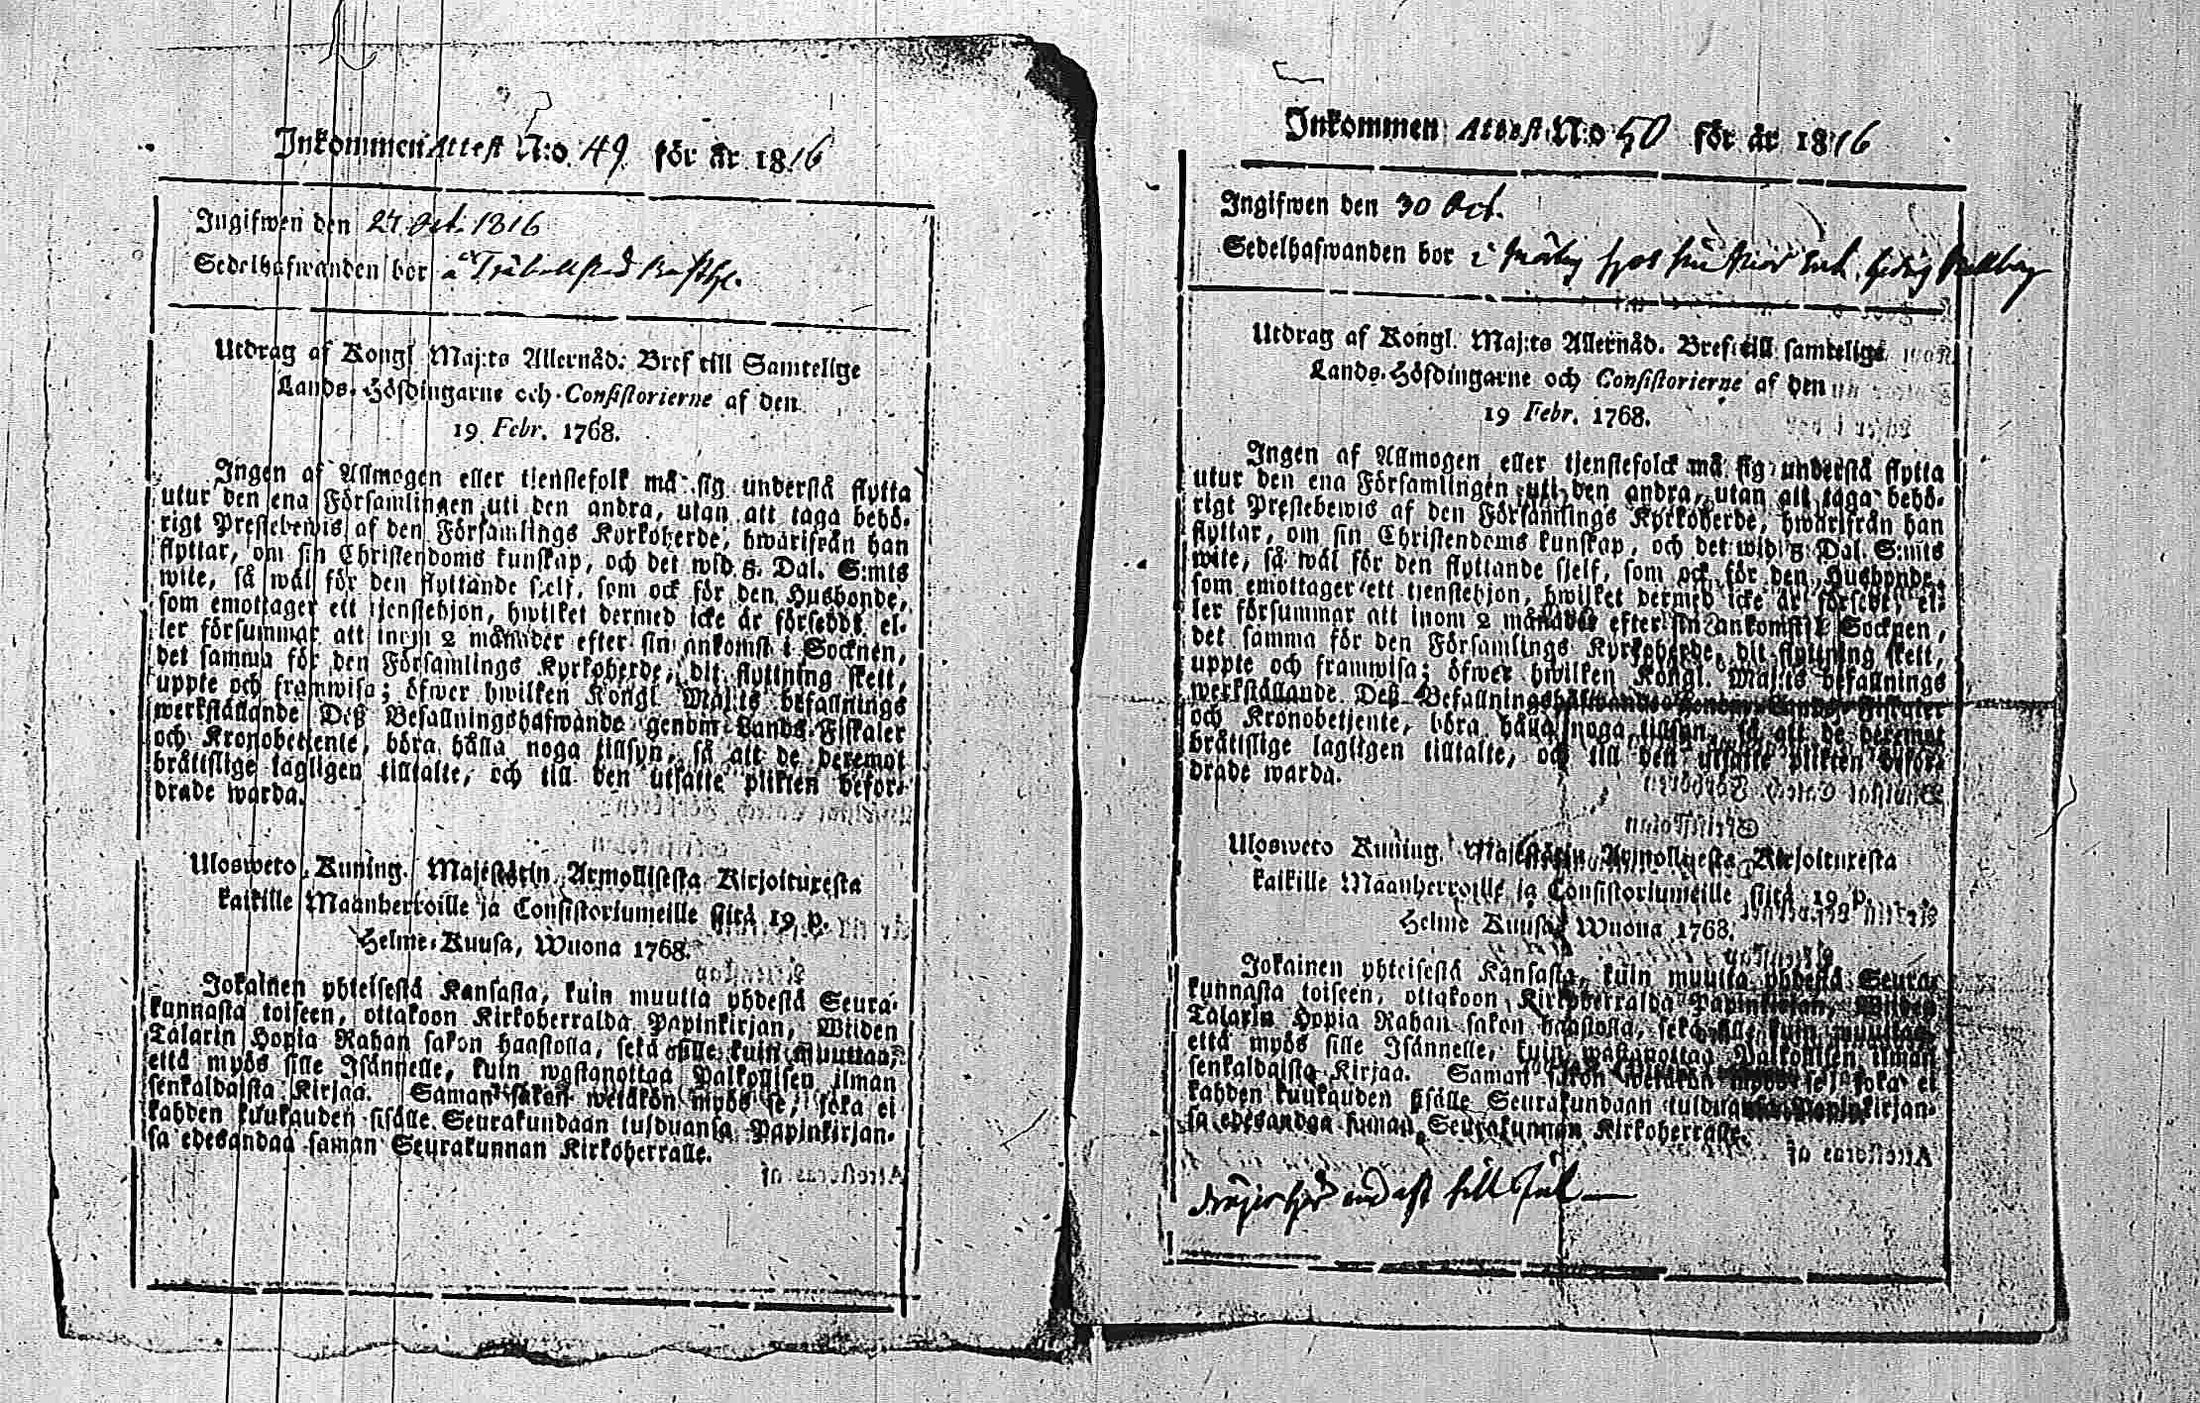 Inkommen Attest N:o 49 för år 1816
Ingifwen den 27 Oct. 1816
Sedelhafwanden bor
Utdrag af Kongl Maj:ts Allernåd: Bref till Samtelige
Lands-Höfdingarne och Consistorierne af den
19 Febr. 1768.
Ingen af Allmogen eller tjenstefolk må sig understå flytta
utur den ena Församlingen uti den andra, utan att taga behö-
rigt Prestebewis af den Församlings Kyrkoherde, hwarifrån han
flyttar, om sin Christendoms kunskap, och det wid 5. Dal. S:mts
wite, så wäl för den flyttande sjelf, som ock för den Husbonde,
som emottager ett tjenstehjon, hwilket dermed icke är försedt, el-
ler försummar att inom 2 månader efter sin ankomst i Socknen,
det samma för den Församlings Kyrkoherde, dit flyttning skett,
uppte och framwisa; öfwer hwilken Kongl. Maj:ts befallnings
werkställande Deß Befallningshafwande genom Lands-Fiskaler
och Kronobetjente, böra hålla noga tillsyn, så att de deremot
bråttslige lagligen tilltalte, och till den utsatte plikten befor-
drade warda.
Ulosweto Kuning. Majestätin Armollisesta Kirjoituxesta
kaikille Maanherroille ja Consistoriumeille siitä 19 p.
Helme-Kuusa, Wuona 1768.
Jokainen yhteisestä Kansasta, kuin muutta yhdestä Seura-
kunnasta toiseen, ottakoon Kirkoherralda Papinkirjan, Wiiden
Talarin Hopia Rahan sakon haastolla, sekä sille kuin muuttaa,
että myös sille Isännelle, kuin wastanottaa Palkollisen ilman
senkaldaista Kirjaa. Saman sakon wetäkön myös se, joka ei
kahden kuukauden sisälle Seurakundaan tulduansa Papinkirjan-
sa edesandaa saman Seurakunnan Kirkoherralle.
Inkommen Attest N:o 50 för år 1816
Ingifwen den 30 Oct.
Sedelhafwanden bor i
Utdrag af Kongl. Maj:ts Allernåd. Bref till samtelige
Lands-Höfdingarne och Consistorierne af den
19 Febr. 1768.
Ingen af Allmogen eller tjenstefolck må sig understå flytta
utur den ena Församlingen uti den andra, utan att taga behö-
rigt Prestebewis af den Församlings Kyrkoherde, hwarifrån han
flyttar, om sin Christendoms kunskap, och det wid 5 Dal. S:mts
wite, så wäl för den flyttande sjelf, som ock för den Husbonde,
som emottager ett tjenstehjon, hwilket dermed icke är försedt, el-
ler försummar att inom 2 månader efter sin ankomst i Socknen,
det samma för den Församlings Kyrkoherde, dit flyttning skett,
uppte och framwisa; öfwer hwilken Kongl. Maj:ts befallnings
werkställande Deß Befallningshafwande genom Lands-Fiskaler
och Kronobetjente, böra hålla noga tillsyn, så att de deremot
bråttslige lagligen tilltalte, och till den utsatte plikten befor-
drade warda.
Ulosweto Kuning. Majestätin Armollisesta Kirjoituxesta
kaikille Maanherroille ja Consistoriumeille siitä 19 p.
Helme Kuusa, Wuona 1768.
Jokainen yhteisestä Kansasta, kuin muutta yhdestä Seura-
kunnasta toiseen, ottakoon Kirkoherralda Papinkirjan, Wiiden
Talarin Hopia Rahan sakon haastolla, sekä sille kuin muuttaa,
että myös sille Isännelle, kuin wastanottaa Palkollisen ilman
senkaldaista Kirjaa. Saman sakon wetäkön myös se, joka ei
kahden kuukauden sisälle Seurakundaan tulduansa Papinkirjan-
sa edesandaa saman Seurakunnan Kirkoherralle.
till Jul